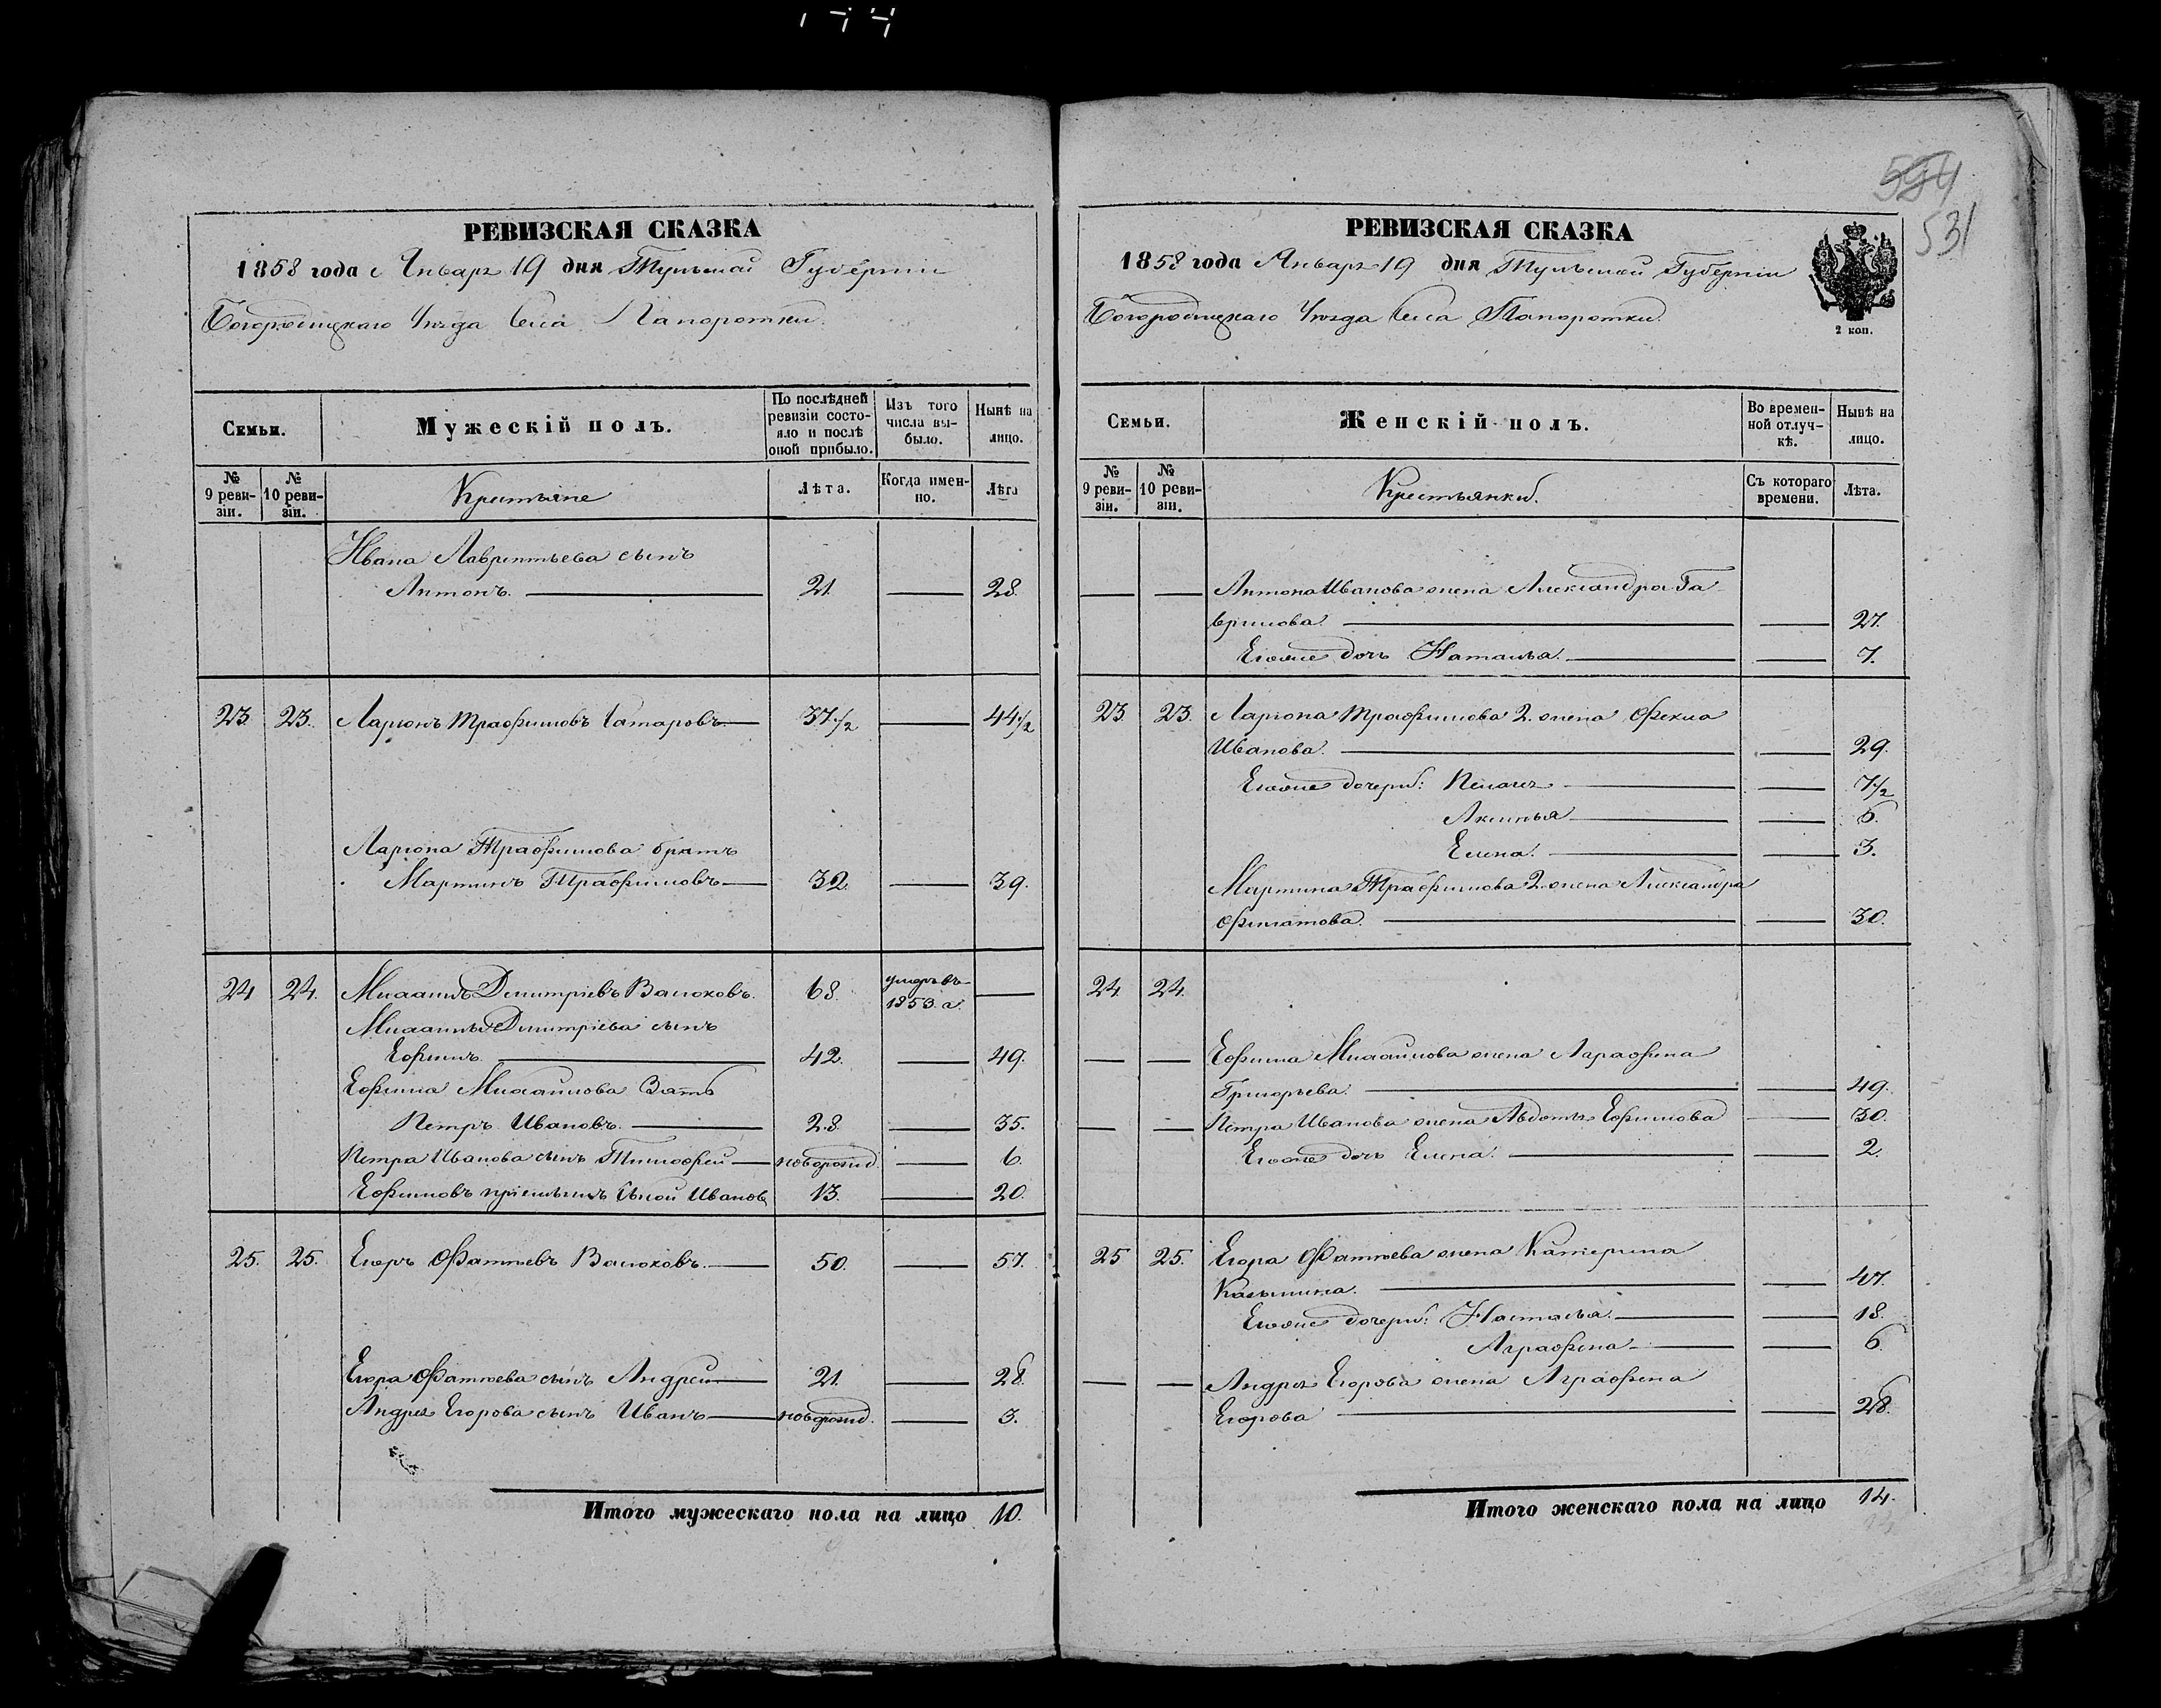 594
531
РЕВИЗСКАЯ СКАЗКА
1858 года Января 19 дня Тульской Губерніи
Богородицкаго Уѣзда Села Папоротки.
Семьи.
Мужескій полъ.
По послѣдней ревизіи состояло и послѣ оной прибыло.
Изъ того числа выбыло.
Нынѣ на лицо.
№ 9 ревизіи.
№ 10 ревизіи.
Крестьяне
Лѣта.
Когда именно.
Лѣта
Ивана Лаврентьева сынъ
Антонъ. 21. 28.
23. 23. Ларіонъ Трафимовъ 37 1/2 44 1/2
Ларіона Трафимова братъ
Мартинъ Трафимовъ 32. 39.
24 24. Михаилъ Дмитріевъ Волоховъ. 68. умеръ въ 1853.
Михаилы Дмитріева сынъ
Ефимъ. 42. 49.
Ефима Михайлова Зять
Петръ Ивановъ. 28. 35.
Петра Иванова сынъ Тимофей новорожд. 6.
Ефимовъ пріемышъ Иванов 13. 20.
25. 25. Егоръ Фатѣевъ Волоховъ. 50. 57.
Егора Фатѣева сынъ Андрей 21. 28.
Андрея Егорова сынъ Иванъ новорожд. 3.
Итого мужескаго пола на лицо 10.
РЕВИЗСКАЯ СКАЗКА
1858 года Января 19 дня Тульской Губерніи
Богородицкаго Уѣзда Села Папоротки.
2 коп.
Семьи.
Женскій полъ.
Во временной отлучкѣ.
Нынѣ на лицо.
№ 9 ревизіи.
№ 10 ревизіи.
Крестьянки.
Съ котораго времени.
Лѣта.
Антона Иванова жена Александра Га-
врилова. 27.
Егоже дочь Наталья. 7.
23. 23. Ларіона Трафимова 2. жена Фекла
Иванова. 29.
Егоже дочери: Пелагея 7 1/2
Аксинья 6.
Елена. 3.
Мартина Трафимова 2. жена Александра
Филатова. 30.
24. 24.
Ефима Михайлова жена Аграфена
Григорьева. 49.
Петра Иванова жена Авдотья Ефимова 30.
Егоже дочь Елена. 2.
25 25. Егора Фатѣева жена Катерина
Касьмина. 47.
Егоже дочери: Настасья. 18.
Аграфена 6.
Андрея Егорова жена Аграфена
Егорова 28.
Итого женскаго пола на лицо 14.